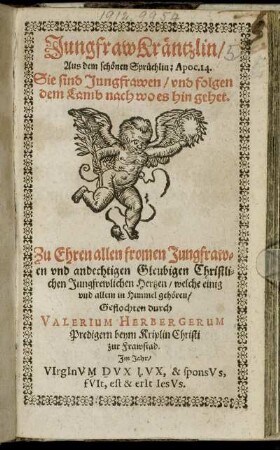 JungfrawKräntzlin/
Aus dem schönen Sprüchlin: Apoc. 14.
Sie sind Jungfrawen/ vnd folgen
dem Lamb nach wo es hin gehet.
Zu Ehren allen fromen Jungfraw-
en vnd andechtigen Gleubigen Christli-
chen Jungfrewlichen Hertzen/ welche einig
vnd allein in Himmel gehören/
Geflochten durch
VALERIUM HERBERGERUM
Predigern beym Kriplin Christi
zur Frawstad.
Im Jahr/
VIrgInVM DVX LVX, & sponsVs,
fVIt, est & erIt IesVs.